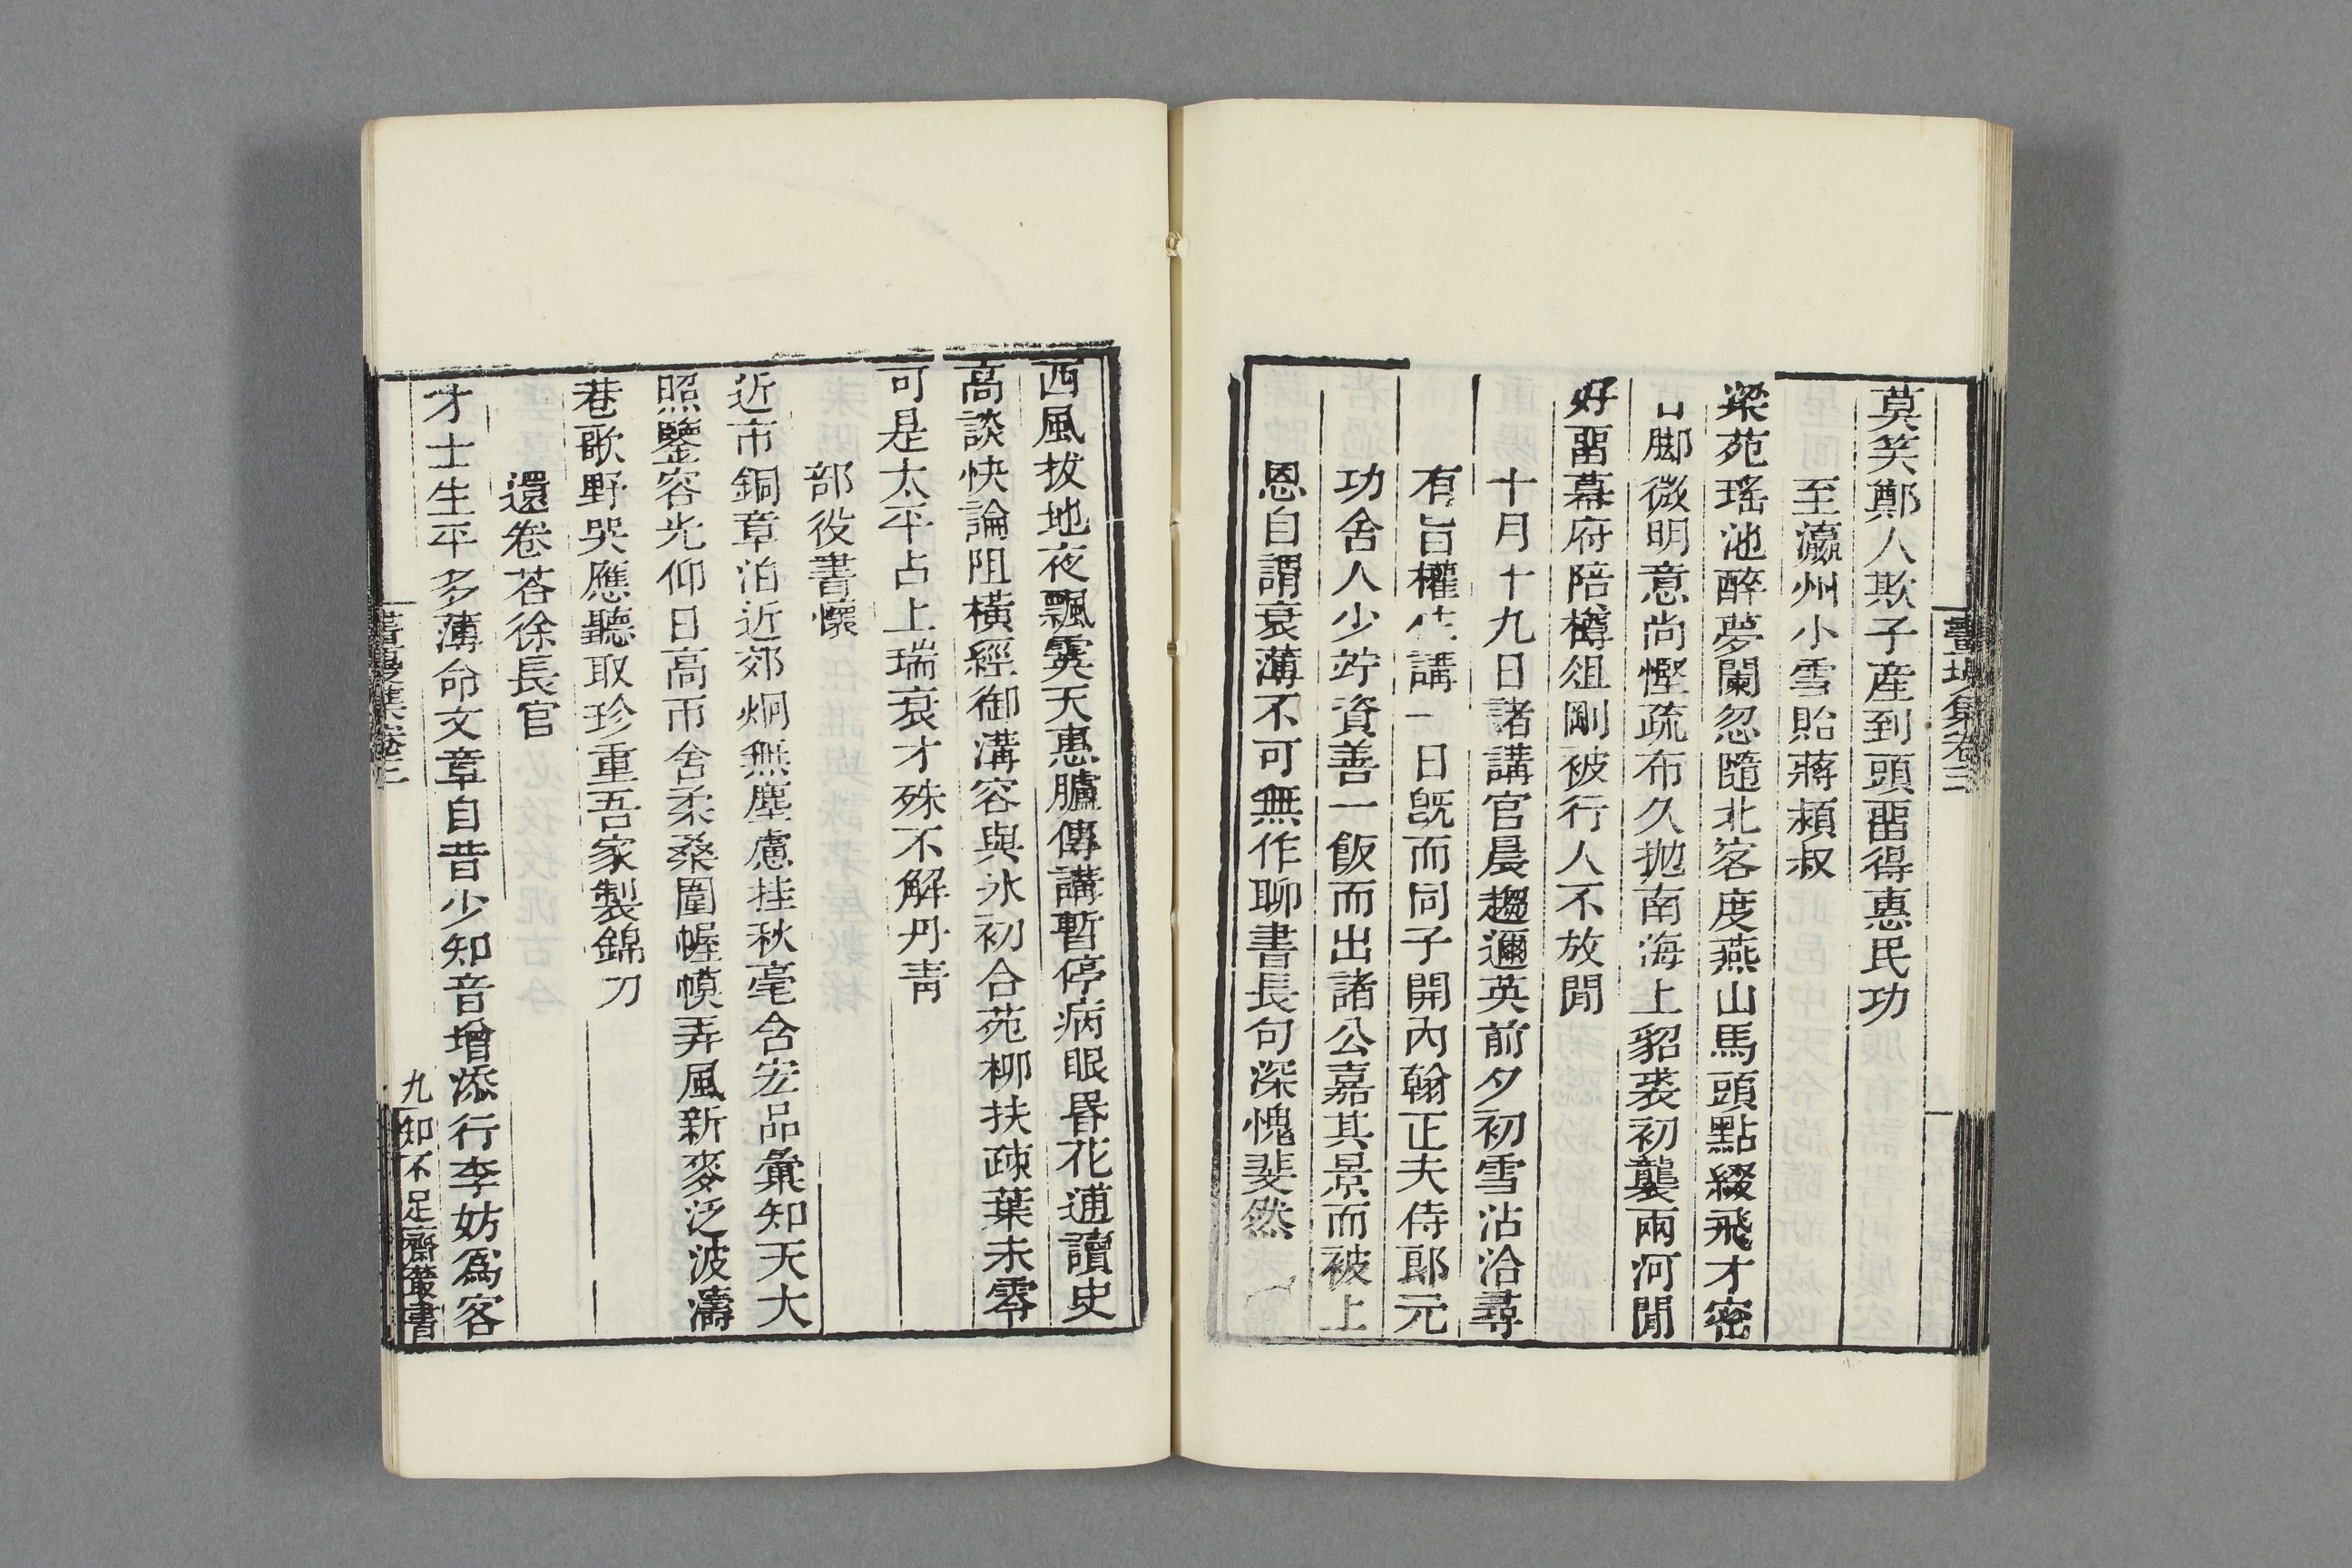 莫笑鄭人欺子産到頭畱得惠民功
至瀛州小雪貽蔣潁叔
梁苑瑤池醉夢闌忽隨北客度燕山馬頭點綴飛才密
脚微明意尚慳疏布久抛南海上貂裘初襲兩河閒
好畱幕府陪樽俎剛被行人不放閒
十月十九日諸講官晨趨邇英前夕初雪沾洽尋
有旨權住講一日旣而同子開內翰正夫侍郎元
功舍人少竚資善一飯而出諸公嘉其景而被上
恩自謂衰薄不可無作聊書長句深愧斐然
西風拔地夜飄霙天惠臚傳講暫停病眼昬花逋讀史
高談快論阻橫經御溝容與氷初合苑柳扶疎葉未零
可是太平占上瑞衰才殊不解丹靑
部役書懷
近市銅章泊近郊炯無塵慮挂秋毫含宏品彙知天大
照鑒容光仰日高帀舍柔桑圍幄幙弄風新麥泛波濤
巷歌野哭應聽取珍重吾家製錦刀
還卷荅徐長官
才士生平多薄命文章自昔少知音增添行李妨爲客
畫墁集卷三
九
知不足齋叢書